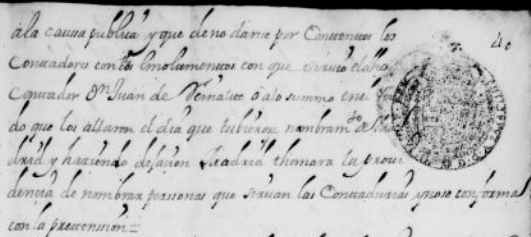 40
ála causa publica y que deno darse por Contentos los
Contadores con los Emolumentos con que sirvio el
Contador Dn Juan de ó alo summo en el
do que los allaron el dia que tubieron nombramto de
drid y haziendo dejazion Madrid thomara la provi
dencia de nombrar perssonas que sirvan las Contadurias y no se conforma
con la pretenssion=